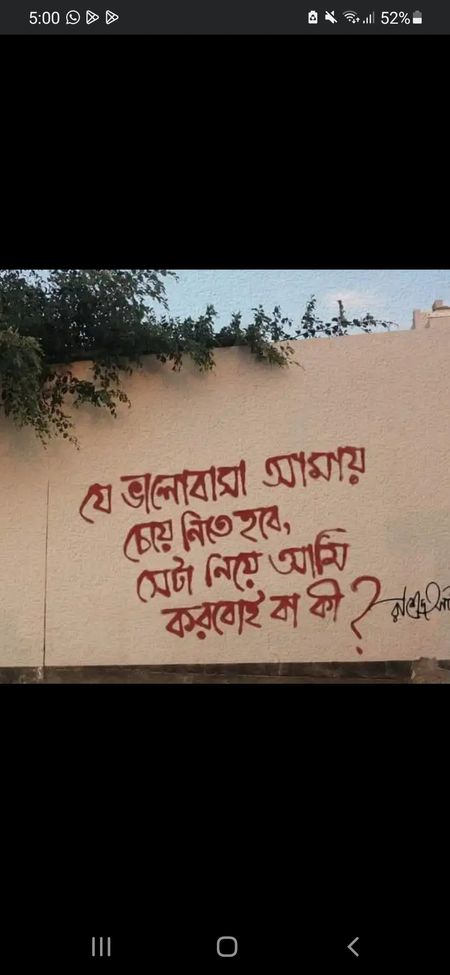 5:00 52%
যে ভালোবাসা আমায়
চেয়ে নিতে হবে,
সেটা নিয়ে আমি
করবোই বা কী?